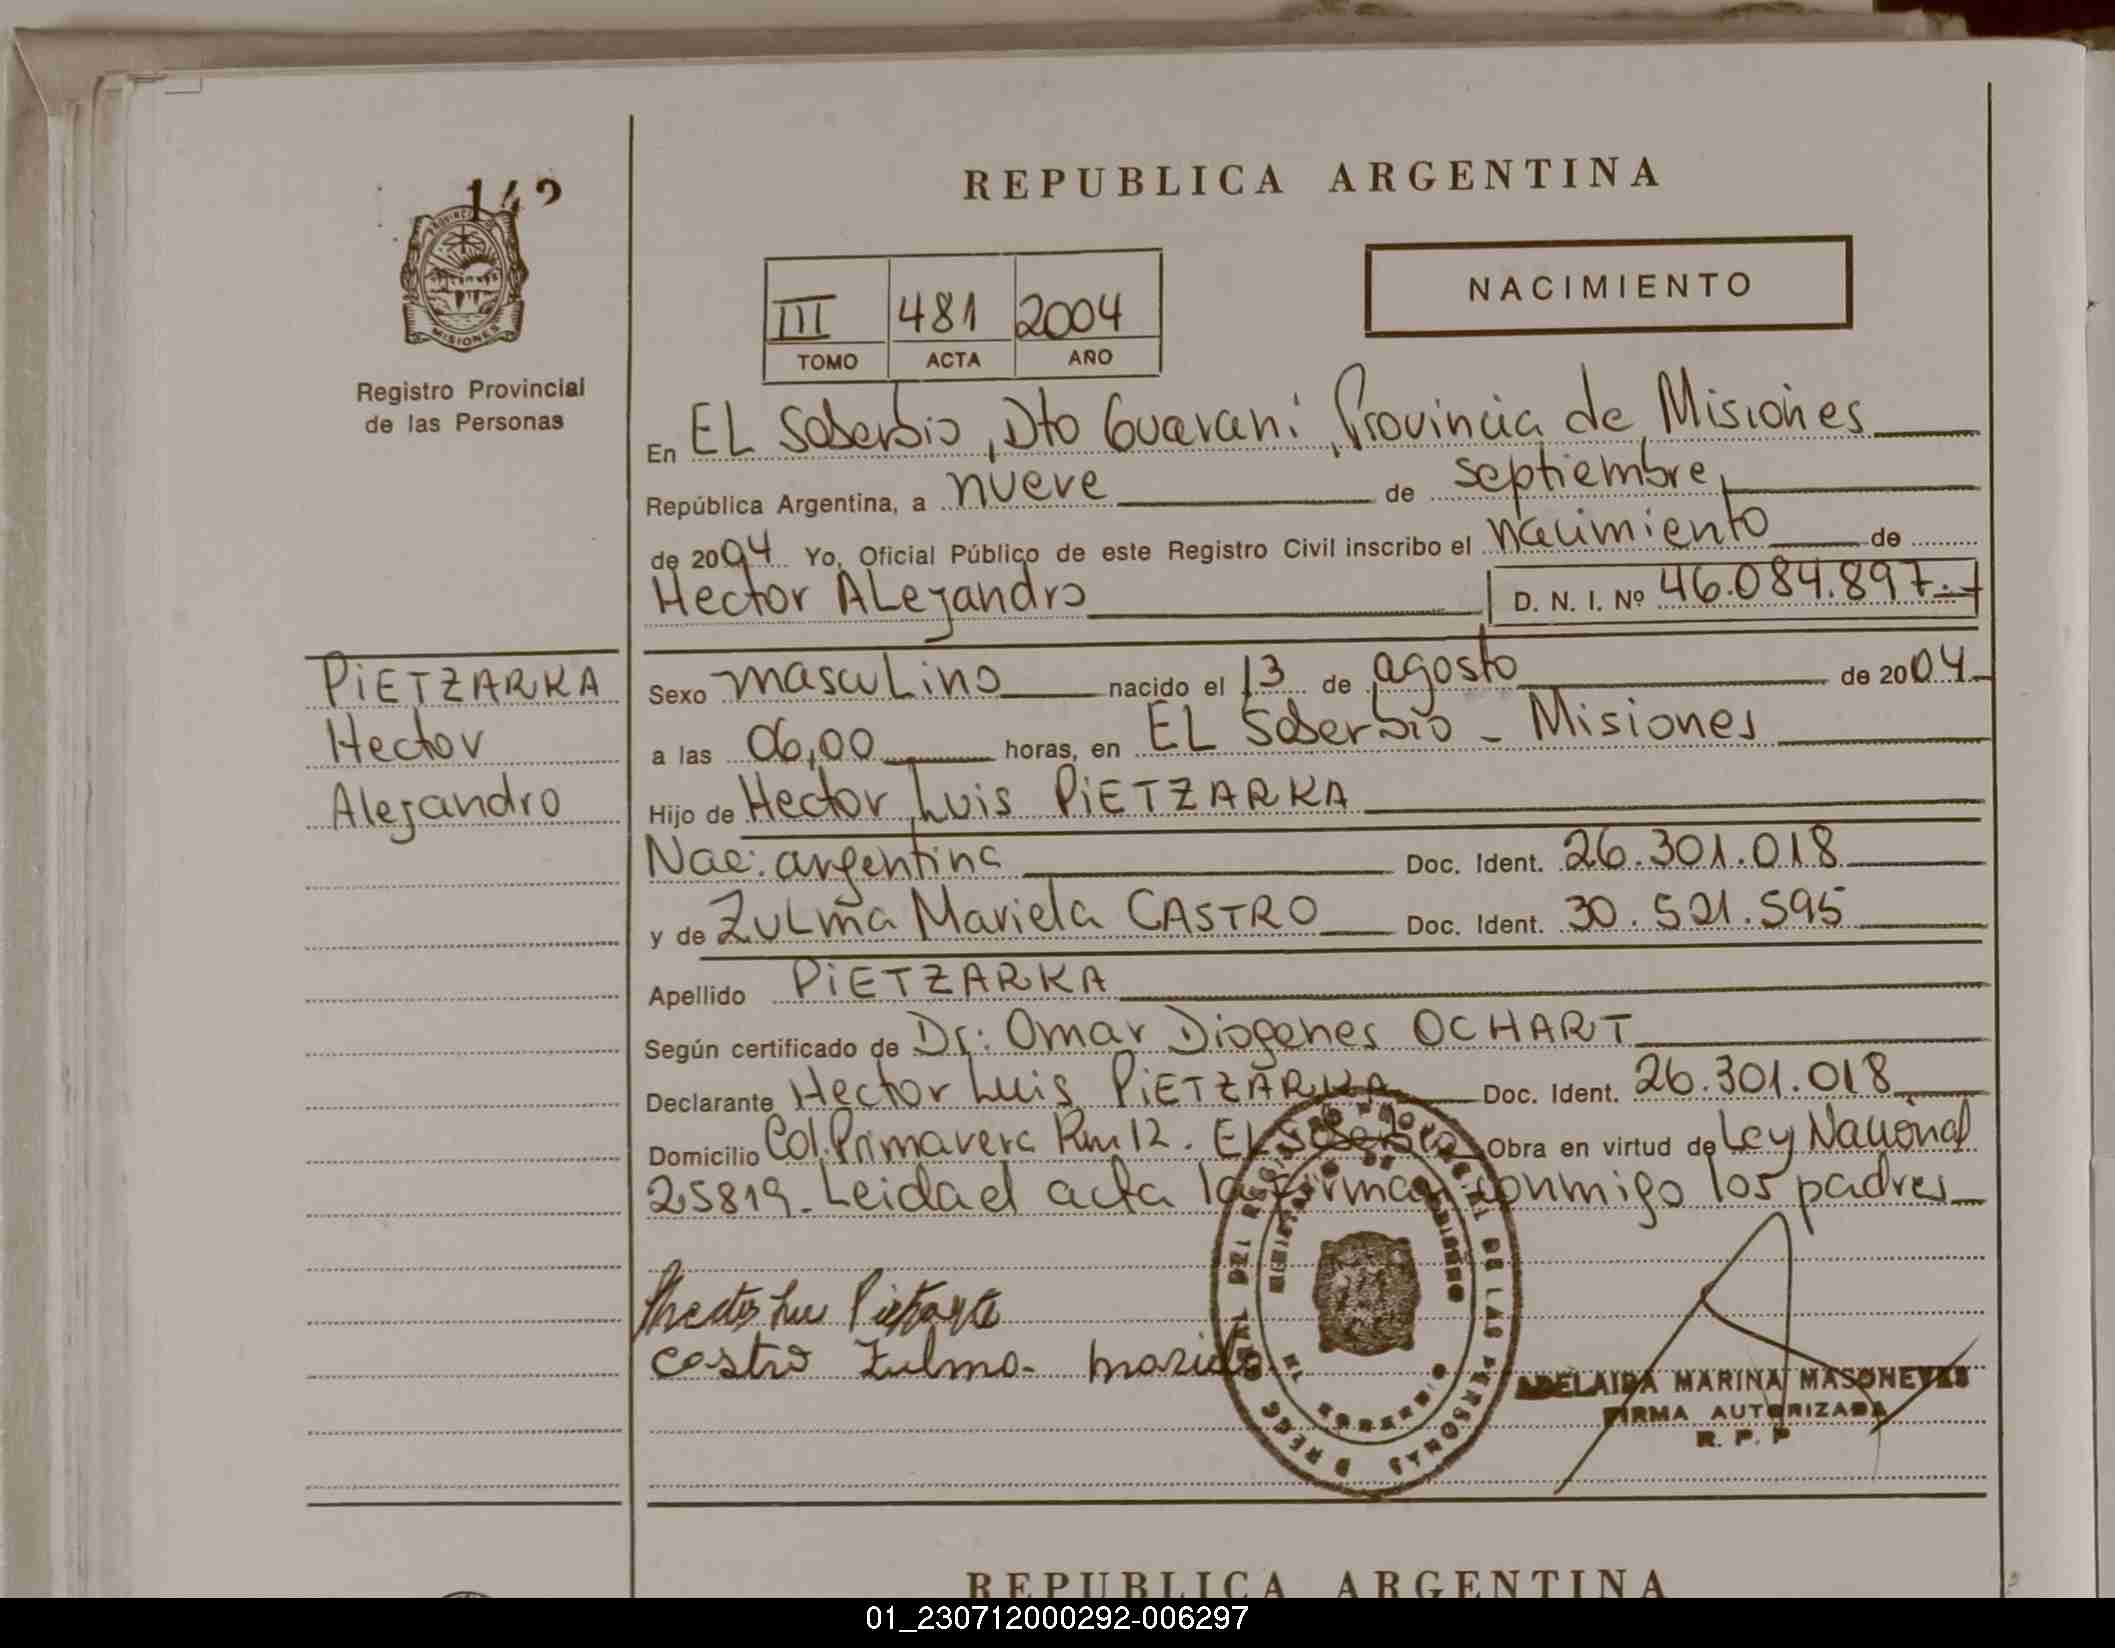 142
PROVINCIA DE
MISIONES
Registro Provincial
de las Personas
REPUBLICA ARGENTINA
NACIMIENTO
III 481 2004
TOMO ACTA AÑO
En EL Soberbio, Dto Guarani, Provincia de Misiones
República Argentina, a nueve de septiembre,
de 2004 Yo, Oficial Público de este Registro Civil inscribo el nacimiento de
Hector ALejandro D. N. I. Nº 46.084.897.-
PiETZARKA
Hector
Alejandro
Sexo mascuLino nacido el 13 de agosto de 2004
a las 06,00 horas, en EL Soberbio - Misiones
Hijo de Hector Luis PiETZARKA
Nac: argentina Doc. Ident. 26.301.018
y de ZuLma Mariela CASTRO Doc. Ident. 30.521.595
Apellido PiETZARKA
Según certificado de Dr: Omar Diogenes OCHART
Declarante Hector Luis PiETZARKA Doc. Ident. 26.301.018
Domicilio Col. Primavera Km 12. EL Soberbio Obra en virtud de Ley Nacional
25819. Leida el acta la firman conmigo los padres
Hector Luis Pietzarka
Castro Zulma mariela
DEL REGISTRO PROVINCIAL DE LAS PERSONAS
MINISTERIO DE GOBIERNO
MISIONES
ADELAIDA MARINA MASONEVES
FIRMA AUTORIZADA
R. P. P
REPUBLICA ARGENTINA
01_230712000292-006297